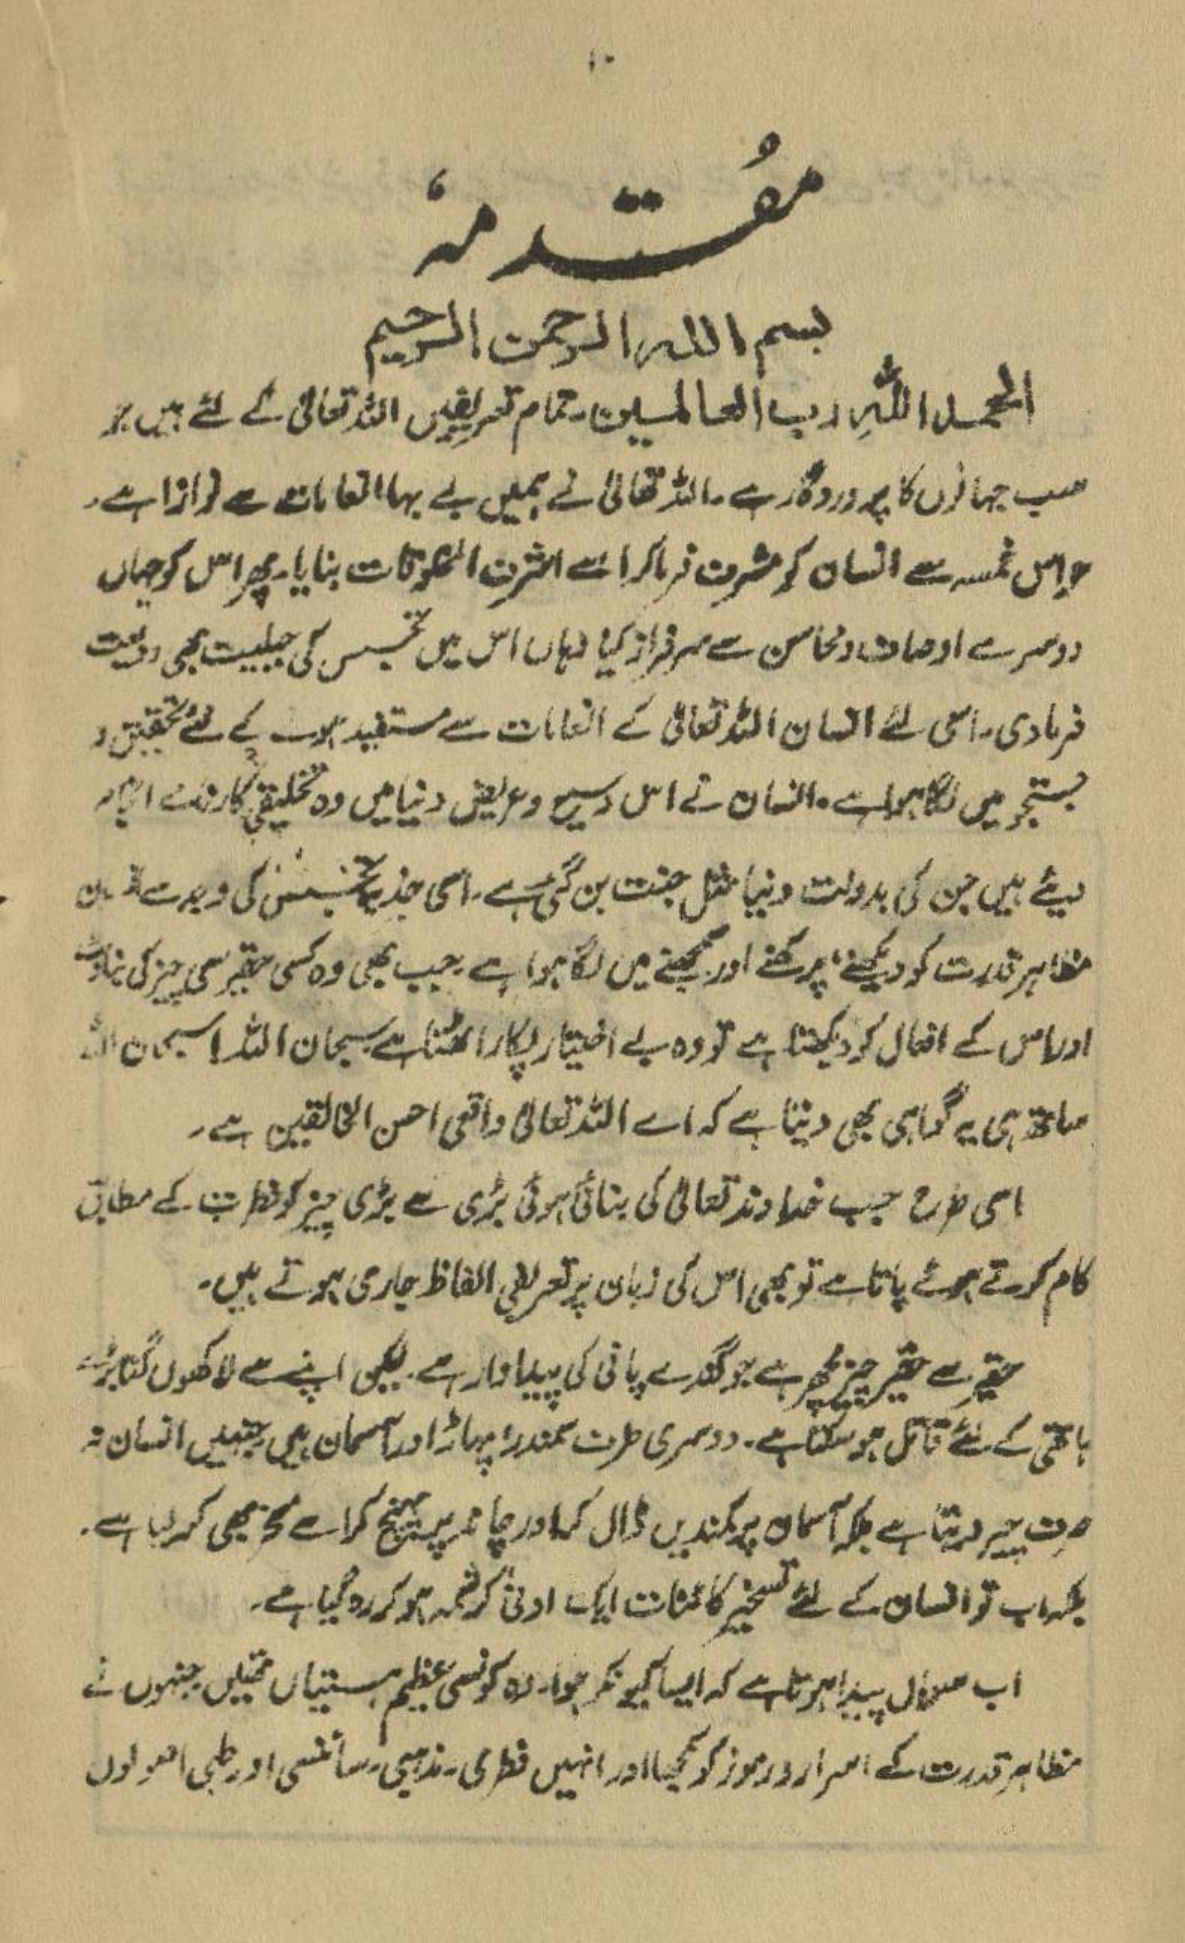 ۱۰
مقدمہ
بسم اللہ الرحمن الرحیم
الحمد اللہِ رب العالمین۔ تمام تعریفیں اللہ تعالیٰ کے لئے ہیں جو
سب جہانوں کا پروردگار ہے۔ اللہ تعالیٰ نے ہمیں بے بہا انعامات سے نوازا ہے۔
حواس خمسہ سے انسان کو مشرف فرما کر اسے اشرف المخلوقات بنایا۔ پھر اس کو جہاں
دوسرے اوصاف و محاسن سے سرفراز کیا وہاں اس میں تجسس کی جبلیت بھی ودیعت
فرمادی۔ اسی لئے انسان اللہ تعالیٰ کے انعامات سے مستفید ہونے کے لئے تحقیق و
جستجو میں لگا ہوا ہے۔ انسان نے اس وسیع و عریض دنیا میں وہ تخلیقی کارنامے انجام
دیئے ہیں جن کی بدولت دنیا مثل جنت بن گئی ہے۔ اسی جذبہ تجسس کی وجہ سے انسان
مظاہر قدرت کو دیکھنے، پرکھنے اور سمجھنے میں لگا ہوا ہے۔ جب بھی وہ کسی حقیر سی چیز کی بناوٹ
اور اس کے افعال کو دیکھتا ہے تو وہ بے اختیار پکار اٹھتا ہے سبحان اللہ! سبحان اللہ
ساتھ ہی یہ گواہی بھی دیتا ہے کہ اے اللہ تعالیٰ واقعی احسن الخالقین ہے۔
اسی طرح جب خداوند تعالیٰ کی بنائی ہوئی بڑی سے بڑی چیز کو فطرت کے مطابق
کام کرتے ہوئے پاتا ہے تو بھی اس کی زبان پر تعریفی الفاظ جاری ہوتے ہیں۔
حقیر سے حقیر چیز مچھر ہے جو گندے پانی کی پیداوار ہے۔ لیکن اپنے سے لاکھوں گنا بڑے
ہاتھی کے لئے قاتل ہو سکتا ہے۔ دوسری طرف سمندر، پہاڑ اور آسمان ہیں جنہیں انسان نہ
صرف چیر دیتا ہے بلکہ آسمان پر کمندیں ڈال کر اور چاند پر پہنچ کر اسے مسخر بھی کر لیا ہے۔
بلکہ اب تو انسان کے لئے تسخیر کائنات ایک ادنیٰ کرشمہ ہو کر رہ گیا ہے۔
اب سوال پیدا ہوتا ہے کہ ایسا کیونکر ہوا۔ وہ کونسی عظیم ہستیاں تھیں جنہوں نے
مظاہر قدرت کے اسرار و رموز کو سمجھا اور انہیں فطری۔ مذہبی۔ سائنسی اور طبی اصولوں